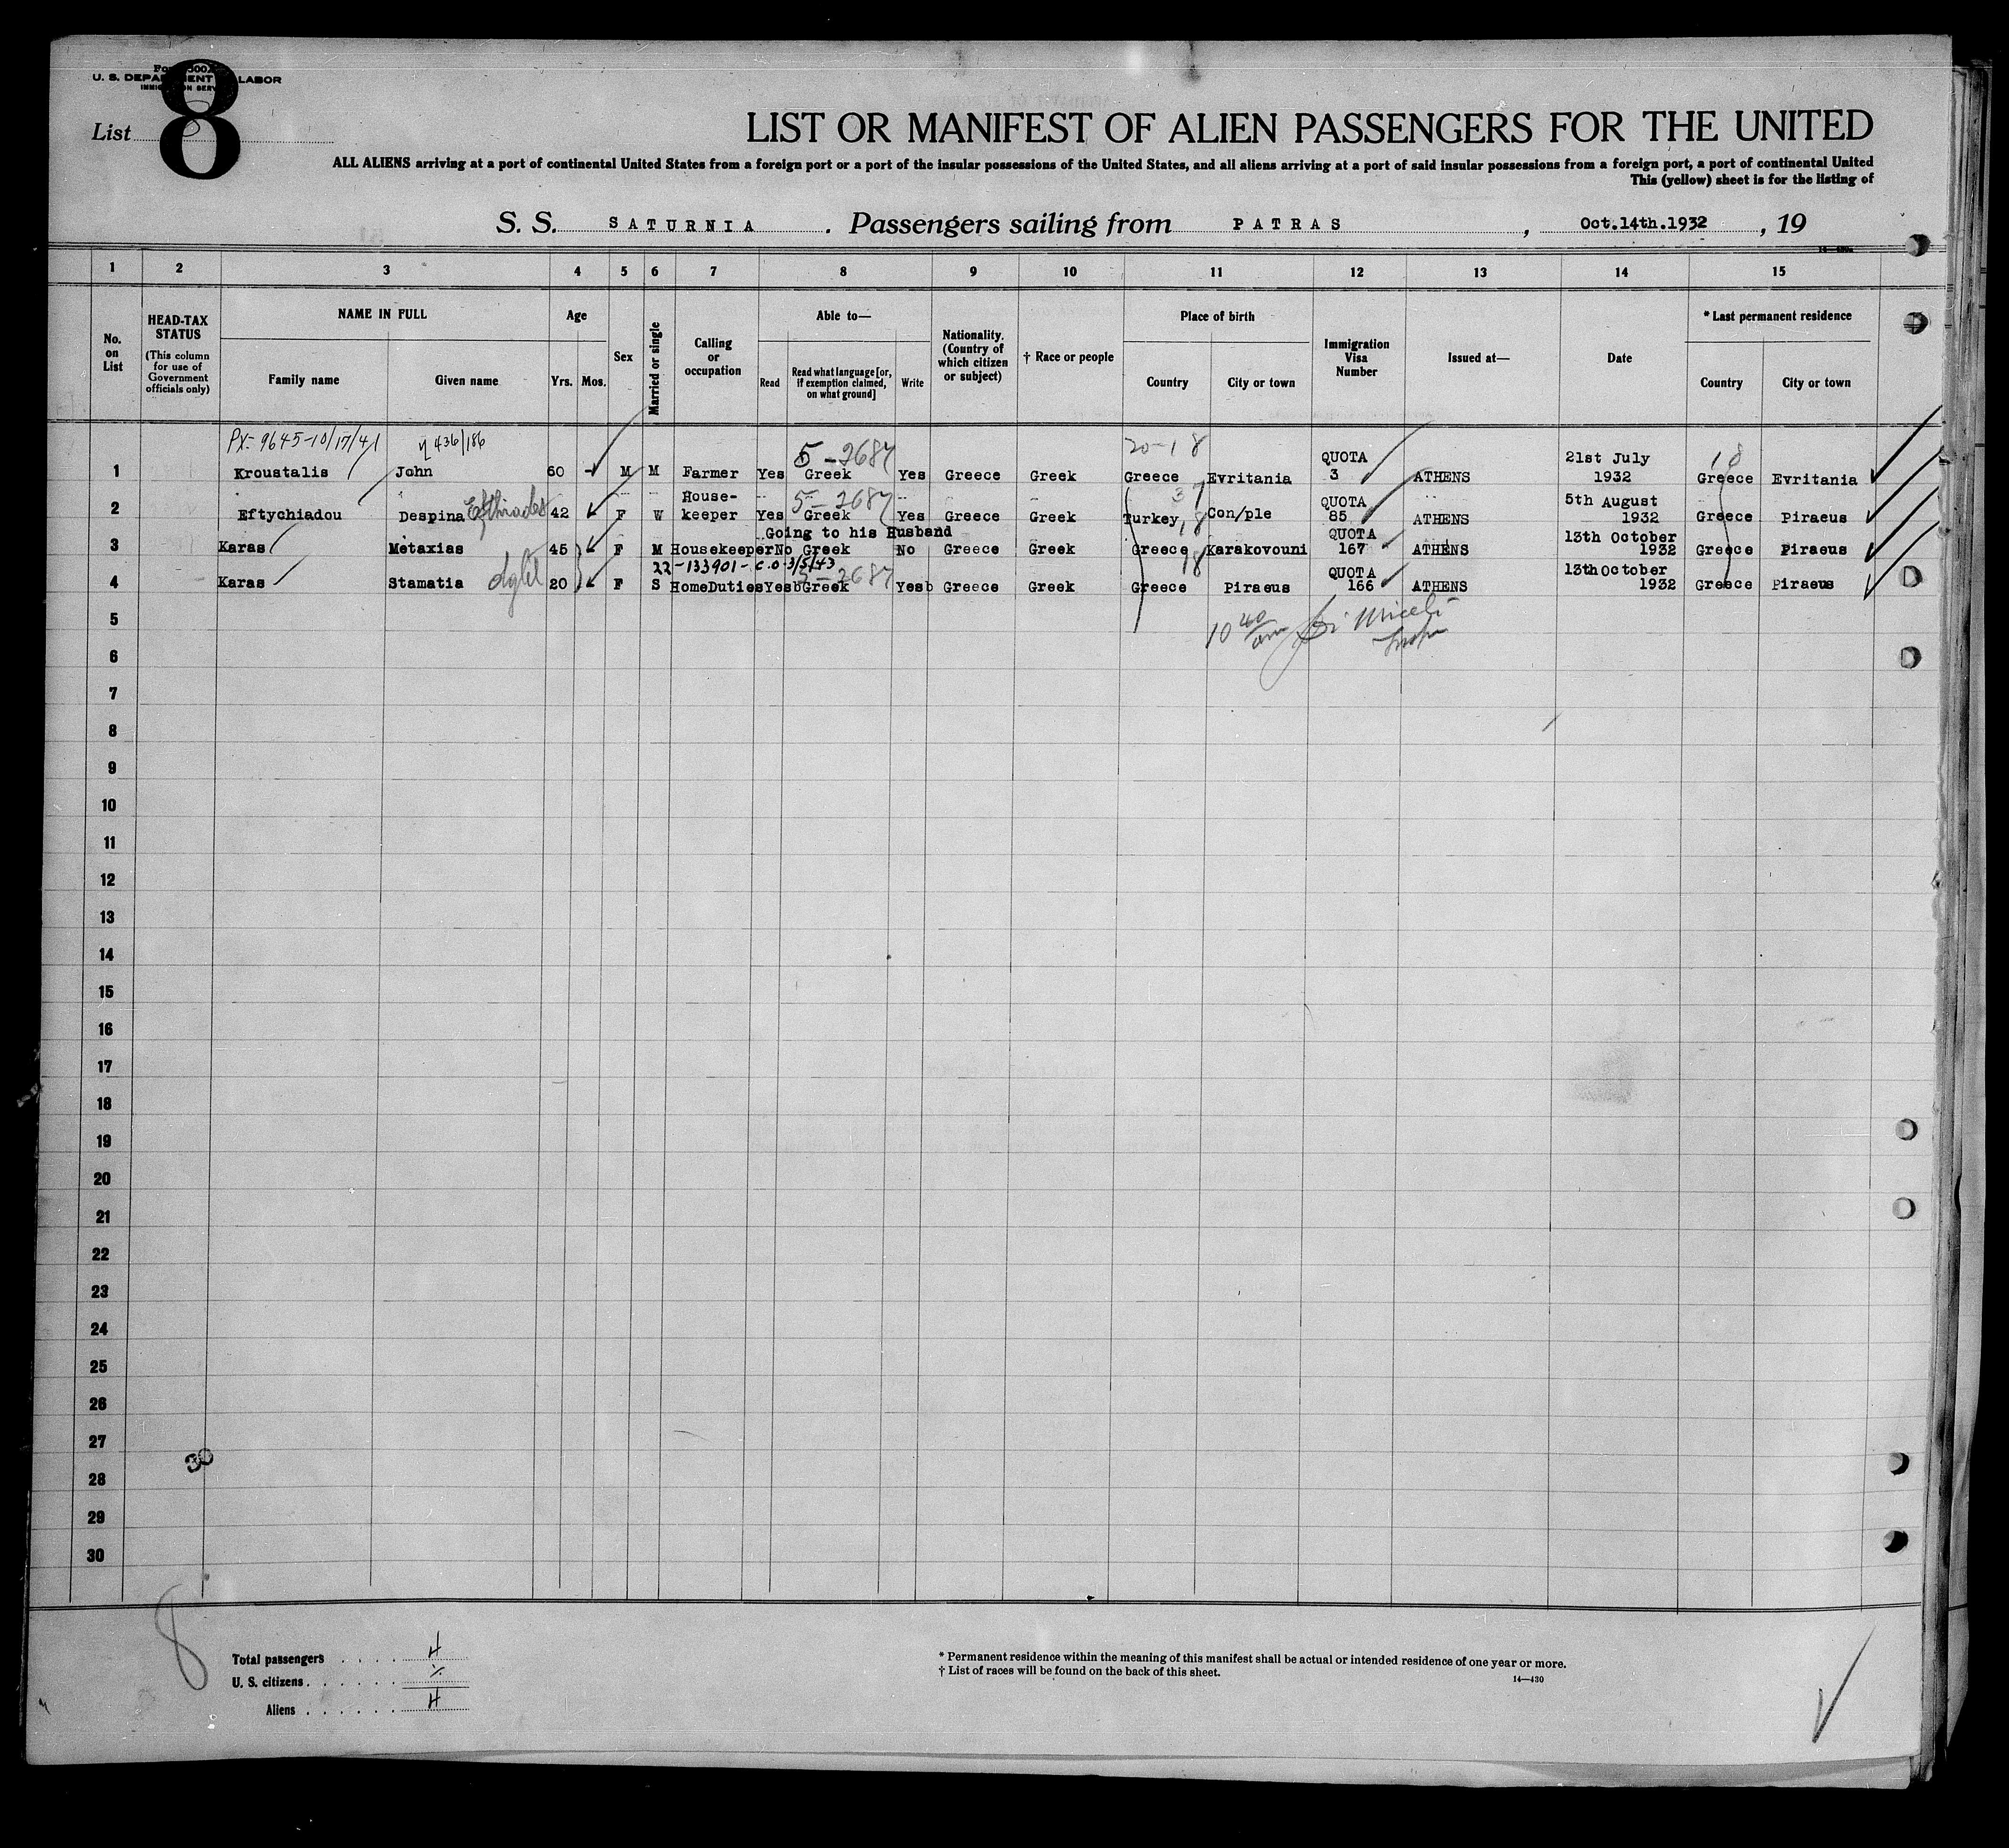 U. S. DEPARTMENT LABOR
List 8
LIST OR MANIFEST OF ALIEN PASSENGERS FOR THE UNITED
ALL ALIENS arriving at a port of continental United States from a foreign port or a port of the insular possessions of the United States, and all aliens arriving at a port of said insular possessions from a foreign port, a port of continental United
This (yellow) sheet is for the listing of
S. S. SATURNIA. Passengers sailing from PATRAS, Oct.14th.1932, 19
1 2 3 4 5 6 7 8 9 10 11 12 13 14 15
No. on List
HEAD-TAX STATUS (This column for use of Government officials only)
NAME IN FULL
Family name Given name
Age
Yrs. Mos.
Sex
Married or single
Calling or occupation
Able to—
Read Read what language [or, if exemption claimed, on what ground] Write
Nationality. (Country of which citizen or subject)
† Race or people
Place of birth
Country City or town
Immigration Visa Number
Issued at—
Date
* Last permanent residence
Country City or town
PX-9645-10/17/41 436/186 5-2687 20-18 18
1 Kroustalis John 60 M M Farmer Yes Greek Yes Greece Greek Greece Evritania QUOTA 3 ATHENS 21st July 1932 Greece Evritania
5-2687 37
2 Eftychiadou Despina 42 F W House-keeper Yes Greek Yes Greece Greek Turkey Con/ple QUOTA 85 ATHENS 5th August 1932 Greece Piraeus
Going to his Husband 18
3 Karas Metaxias 45 F M Housekeeper No Greek No Greece Greek Greece Karakovouni QUOTA 167 ATHENS 13th October 1932 Greece Piraeus
22-133901-C.O.3/5/43 5-2687 18
4 Karas Stamatia 20 F S HomeDuties Yes Greek Yes Greece Greek Greece Piraeus QUOTA 166 ATHENS 13th October 1932 Greece Piraeus
5 10 40 am
6
7
8
9
10
11
12
13
14
15
16
17
18
19
20
21
22
23
24
25
26
27
30
28
29
30
8
Total passengers . . . . 4
U. S. citizens . . . . . .
Aliens . . . . . . 4
* Permanent residence within the meaning of this manifest shall be actual or intended residence of one year or more.
† List of races will be found on the back of this sheet.
14—430